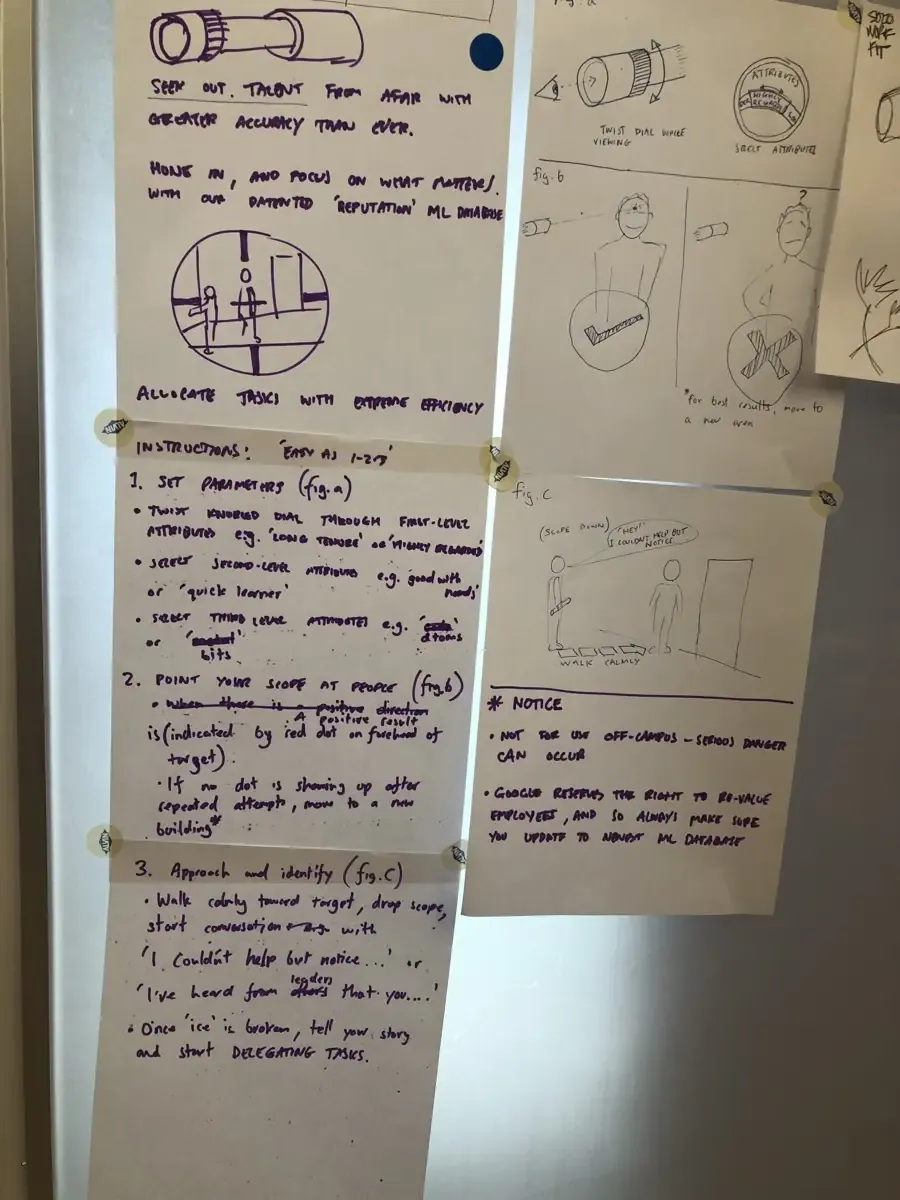 SEEK OUT TALENT FROM AFAR WITH
GREATER ACCURACY THAN EVER.
HONE IN, AND FOCUS ON WHAT MATTERS.
WITH OUR PATENTED 'REPUTATION' ML DATABASE
ALLOCATE TASKS WITH EXTREME EFFICIENCY
INSTRUCTIONS: 'EASY AS 1-2-3'
1. SET PARAMETERS (fig.a)
• TWIST KNURLED DIAL THROUGH FIRST-LEVEL
ATTRIBUTES e.g. 'LONG TENURE' or 'HIGHLY REGARDED'
• SELECT SECOND-LEVEL ATTRIBUTE e.g. 'good with
heads'
or 'quick learner'
• SELECT THIRD LEVEL ATTRIBUTES e.g.
atoms
or
bits
2. POINT YOUR SCOPE AT PEOPLE (fig.b)
• When there is a positive direction
A positive result
is (indicated by red dot on forehead of
target).
• If no dot is showing up after
repeated attempts, move to a new
building*
3. Approach and identify (fig.C)
• Walk calmly toward target, drop scope,
start conversation with
'I couldn't help but notice...' or
leaders
'I've heard from others that you....'
• Once 'ice' is broken, tell your story
and start DELEGATING TASKS.
fig.a
TWIST DIAL WHILE
VIEWING
ATTRIBUTES
HIGHLY
REGARDED
SELECT ATTRIBUTES
fig.b
?
*for best results, move to
a new area
fig.C
(SCOPE DOWN)
"HEY!"
I COULDN'T HELP BUT
NOTICE
WALK CALMLY
* NOTICE
• NOT FOR USE OFF-CAMPUS - SERIOUS DANGER
CAN OCCUR
• GOOGLE RESERVES THE RIGHT TO RE-VALUE
EMPLOYEES, AND SO ALWAYS MAKE SURE
YOU UPDATE TO NEWEST ML DATABASE
SOLO
WORK
KIT